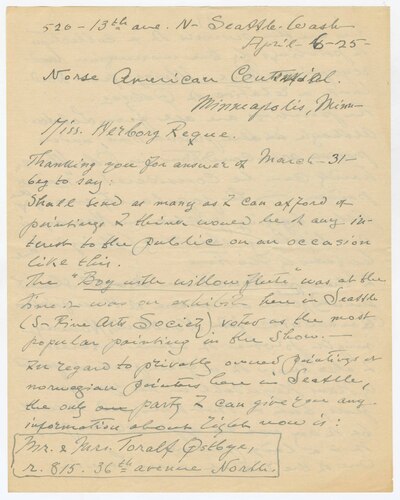 526 - 13th ave. N - Seattle. Wash
April 6 - 25 -
Norse American Centennial.
Minneapolis, Minn -
Miss. Herborg Reque.
Thanking you for answer of March - 31 -
beg to say:
Shall send as many as I can afford of
paintings I think would be of any in-
terest to the public on an occasion
like this.
The "Boy with willow flute" was at the
time it was on exhibit here in Seattle
(S - Fine Arts Society) voted as the most
popular painting in the show. -
In regard to privatly owned paintings of
norwegian painters here in Seattle,
the only party I can give you any
information about right now is:
Mr. & Mrs. Toralf Østbye,
r. 815. 36th avenue North.